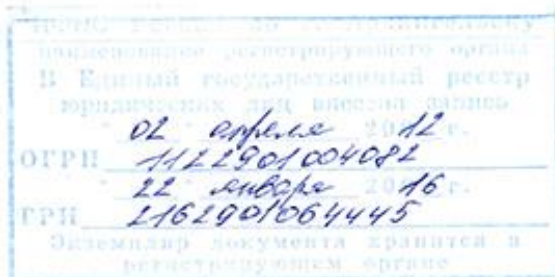 ИФНС России по г. Архангельску
наименование регистрирующего органа
В Единый государственный реестр
юридических лиц внесена запись
" 02 " апреля 2012 г.
ОГРН 1122901004082
" 22 " января 2016 г.
ГРН 2162901064445
Экземпляр документа хранится в
регистрирующем органе